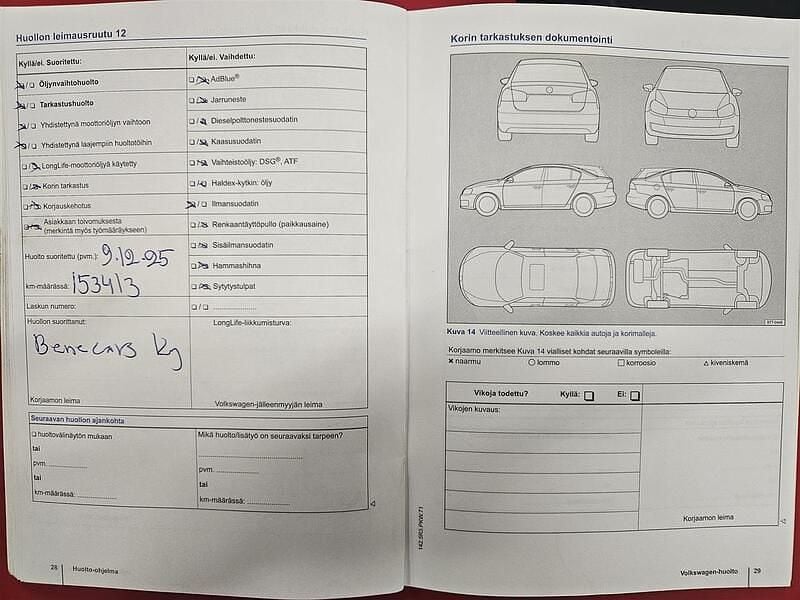 Huollon leimausruutu 12
Kyllä/ei. Suoritettu:
Öljynvaihtohuolto
Tarkastushuolto
Yhdistettynä moottoriöljyn vaihtoon
Yhdistettynä laajempiin huoltotöihin
LongLife-moottoriöljyä käytetty
Korin tarkastus
Korjauskehotus
Asiakkaan toivomuksesta
(merkintä myös työmääräykseen)
Huolto suoritettu (pvm.): 9.12.25
km-määrässä: 153413
Laskun numero:
Huollon suorittanut:
Benecars Ky
Korjaamon leima
Kyllä/ei. Vaihdettu:
AdBlue®
Jarruneste
Dieselpolttonestesuodatin
Kaasusuodatin
Vaihteistoöljy: DSG®, ATF
Haldex-kytkin: öljy
Ilmansuodatin
Renkaantäyttöpullo (paikkausaine)
Sisäilmansuodatin
Hammashihna
Sytytystulpat
LongLife-liikkumisturva:
Volkswagen-jälleenmyyjän leima
Seuraavan huollon ajankohta
huoltovälinäytön mukaan
tai
pvm.
tai
km-määrässä:
Mikä huolto/lisätyö on seuraavaksi tarpeen?
pvm.
tai
km-määrässä:
28 Huolto-ohjelma
142.5R3.PKW.71
Korin tarkastuksen dokumentointi
Kuva 14 Viitteellinen kuva. Koskee kaikkia autoja ja korimalleja.
Korjaamo merkitsee Kuva 14 vialliset kohdat seuraavilla symboleilla:
naarmu lommo korroosio kiveniskemä
Vikoja todettu? Kyllä: Ei:
Vikojen kuvaus:
Korjaamon leima
Volkswagen-huolto 29